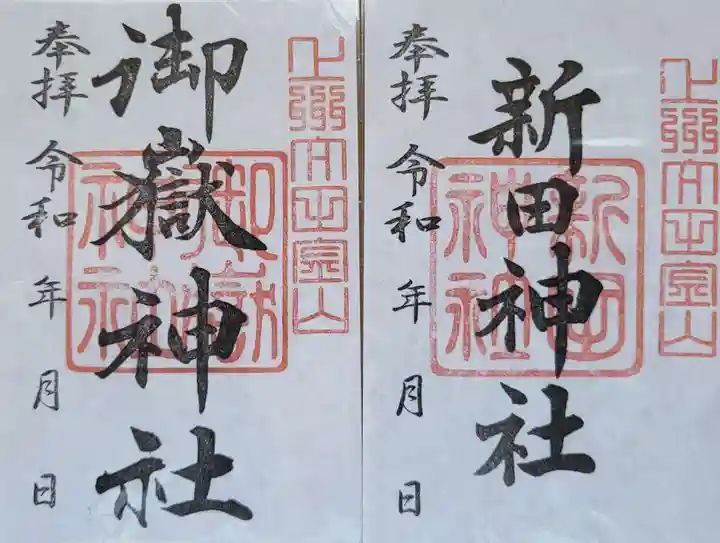 上州太田金山
新田神社
新田
神社
奉拝 令和 年 月 日
上州太田金山
御嶽神社
御嶽
神社
奉拝 令和 年 月 日